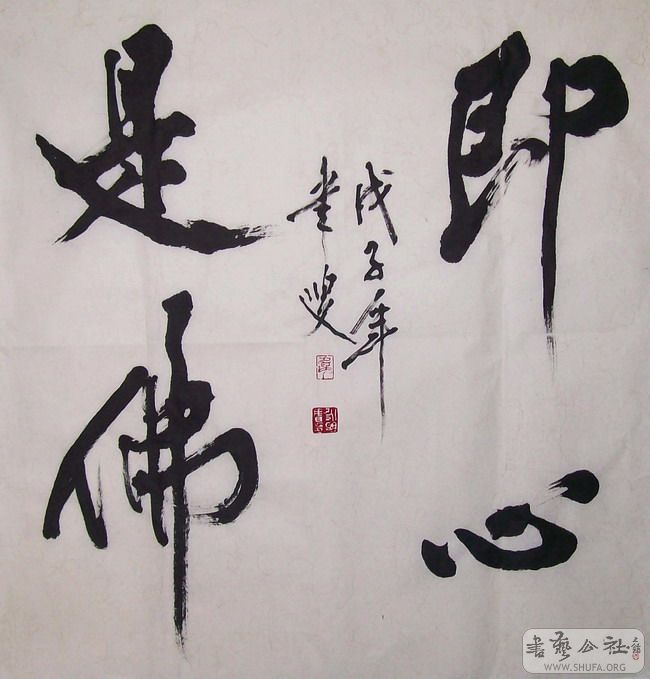 即心
是佛
戊子年
書藝公社
WWW.SHUFA.ORG